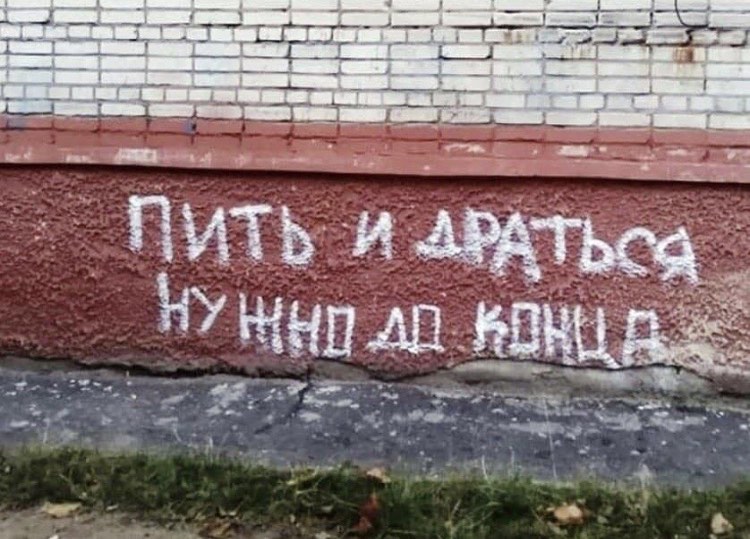 ПИТЬ И ДРАТЬСЯ
НУЖНО ДО КОНЦА